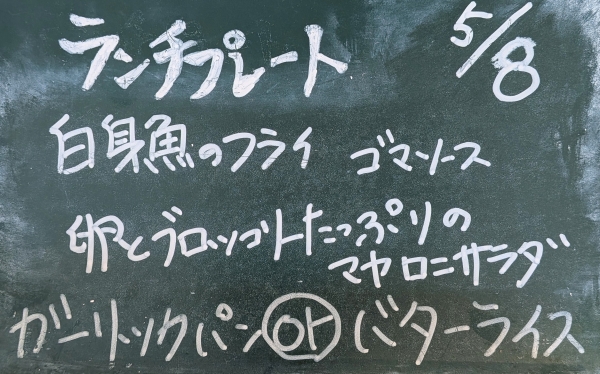 ランチプレート 5/8
白身魚のフライ ゴマソース
卵とブロッコリーたっぷりの
マカロニサラダ
ガーリックパン or バターライス